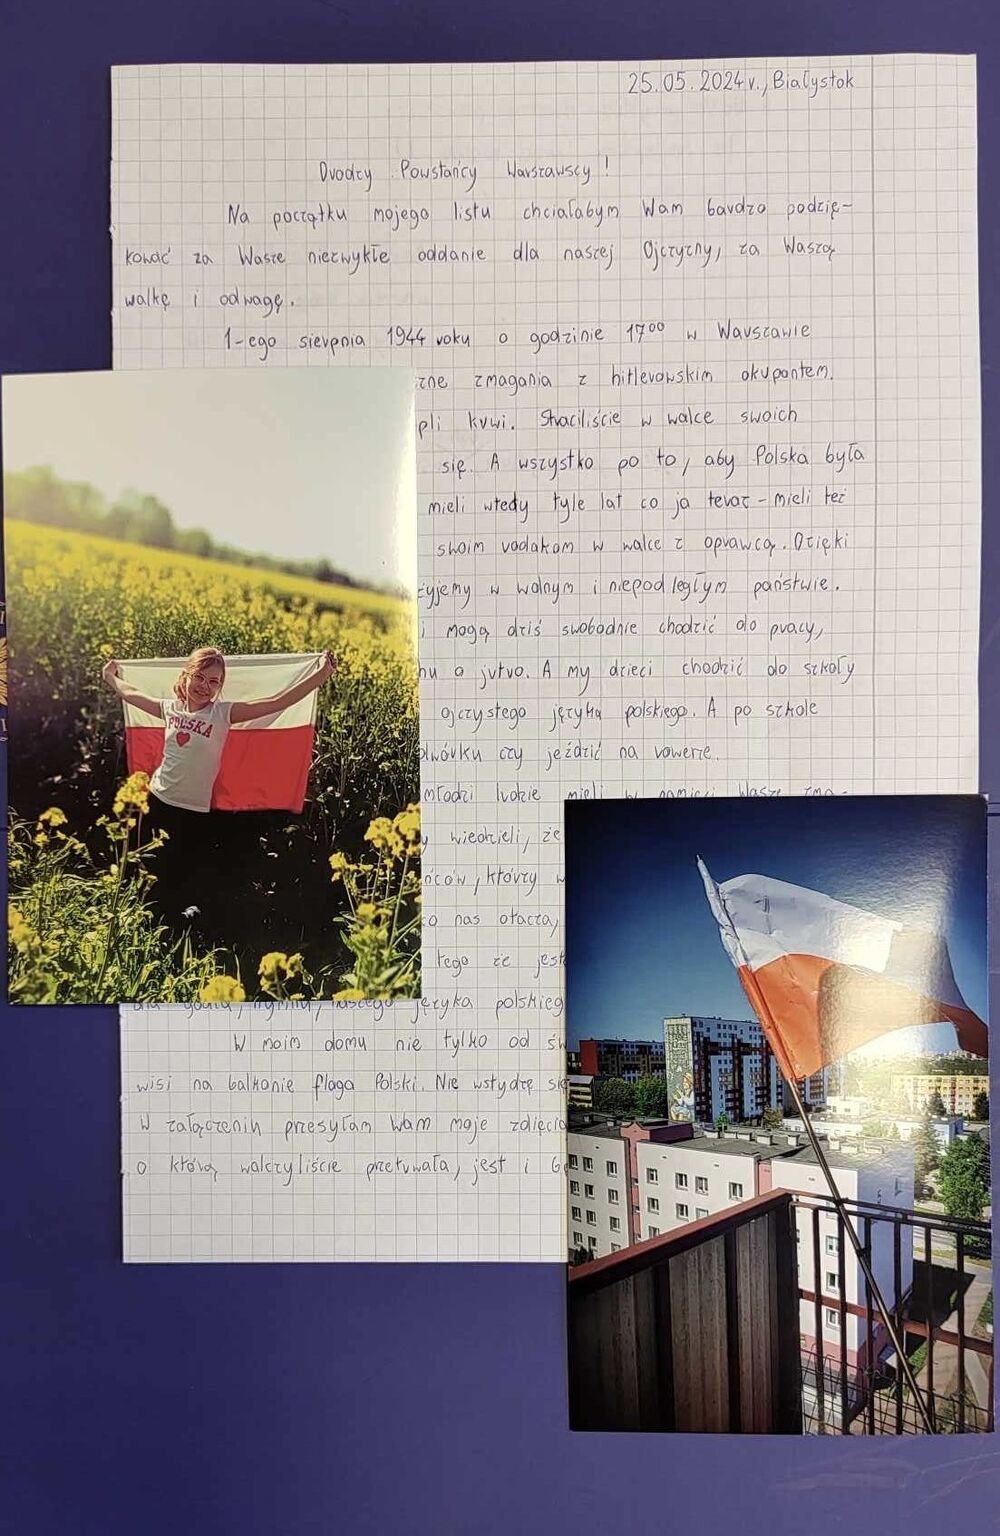 25.05.2024r., Białystok
Drodzy Powstańcy Warszawscy!
Na początku mojego listu chciałabym Wam bardzo podzię-
kować za Wasze niezwykłe oddanie dla naszej Ojczyzny, za Waszą
walkę i odwagę.
1-ego sierpnia 1944 roku o godzinie 17⁰⁰ w Warszawie
zne zmagania z hitlerowskim okupantem.
pli krwi. Straciliście w walce swoich
się. A wszystko po to, aby Polska była
mieli wtedy tyle lat co ja teraz - mieli też
swoim rodakom w walce z oprawcą. Dzięki
żyjemy w wolnym i niepodległym państwie.
i mogą dziś swobodnie chodzić do pracy,
hu o jutro. A my dzieci chodzić do szkoły
ojczystego języka polskiego. A po szkole
dwórku czy jeździć na rowerze.
młodzi ludzie mieli w pamięci Wasze zma-
y wiedzieli, że
ńców, którzy w
o nas otacza,
tego że jest
dla godła, hymnu, naszego języka polskieg
W moim domu nie tylko od św
wisi na balkonie flaga Polski. Nie wstydzę się
W załączeniu przesyłam Wam moje zdjęcia
o którą walczyliście przetrwała, jest i
POLSKA